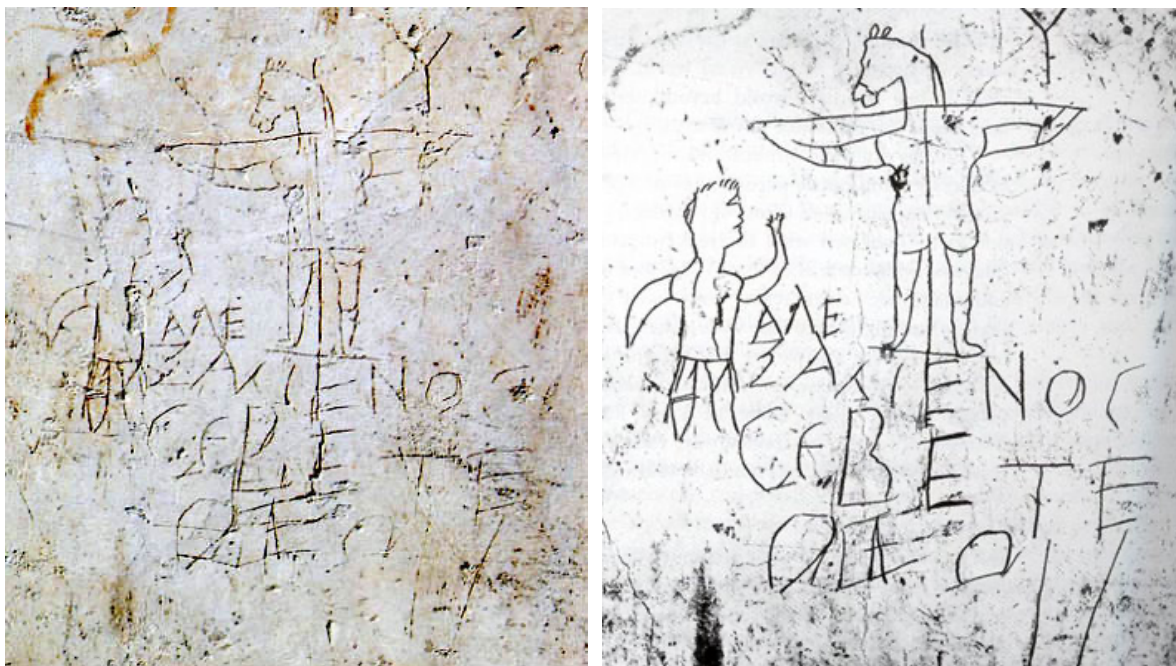 ΑΛΕ
ΞΑΜΕΝΟϹ
ϹΕΒΕΤΕ
ΘΕΟΝ
ΑΛΕ
ΞΑΜΕΝΟϹ
ϹΕΒΕΤΕ
ΘΕΟΝ